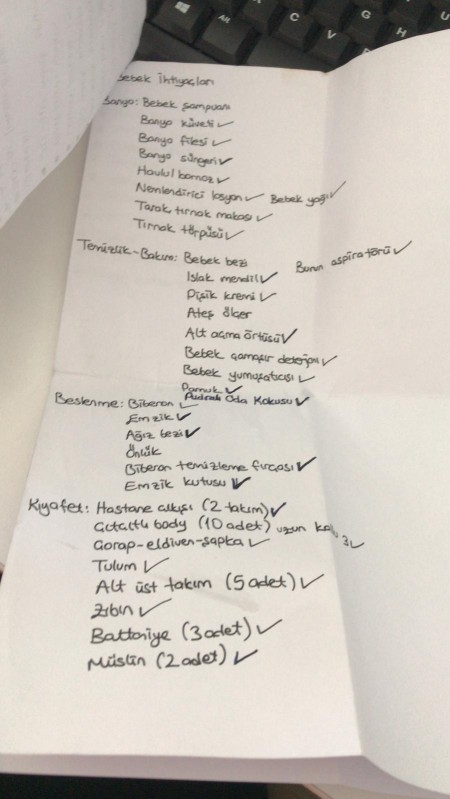 Bebek İhtiyaçları
Banyo: Bebek şampuanı
Banyo küveti ✓
Banyo filesi ✓
Banyo süngeri ✓
Havlu/bornoz ✓
Nemlendirici losyon ✓ Bebek yağı ✓
Tarak tırnak makası ✓
Tırnak törpüsü ✓
Temizlik-Bakım: Bebek bezi Burun aspiratörü ✓
Islak mendil ✓
Pişik kremi ✓
Ateş ölçer
Alt açma örtüsü ✓
Bebek çamaşır deterjanı ✓
Bebek yumuşatıcısı ✓
Pamuk ✓
Oda Kokusu ✓
Beslenme: Biberon ✓
Emzik ✓
Ağız bezi ✓
Önlük
Biberon temizleme fırçası ✓
Emzik kutusu ✓
Kıyafet: Hastane çıkışı (2 takım) ✓
Çıtçıtlı body (10 adet) uzun 3 ✓
Çorap-eldiven-şapka ✓
Tulum ✓
Alt üst takım (5 adet) ✓
Zıbın ✓
Battaniye (3 adet) ✓
Müslin (2 adet) ✓
C
V
G
H